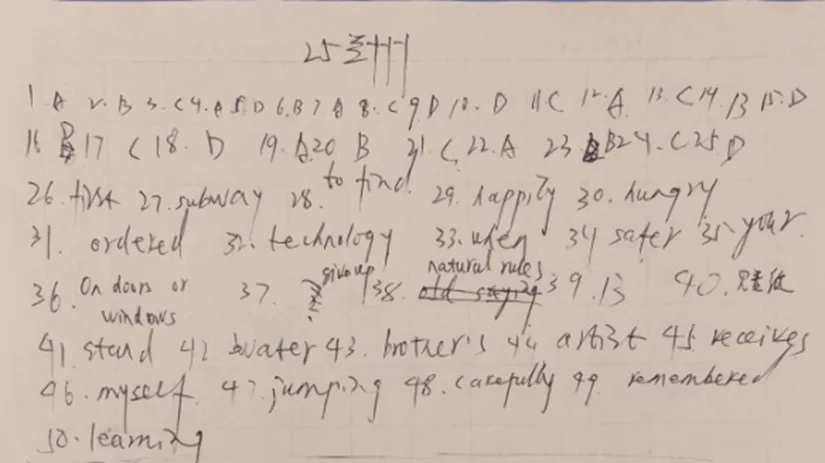 25兰州
1. A 2. B 3. C 4. A 5. D 6. B 7 A 8. C 9 D 10. D 11 C 12. A 13. C 14. B 15. D
16 B 17 C 18. D 19. A 20 B 21. C 22. A 23 B 24. C 25 D
26. first 27. subway 28. to find 29. happily 30. hungry
31. ordered 32. technology 33. when 34 safer 35. your
36. On doors or windows 37. give up 38. natural rules 39. B 40.
41 stand 42 water 43. brother's 44 artist 45 receives
46. myself 47. jumping 48. carefully 49 remembered
50. learning